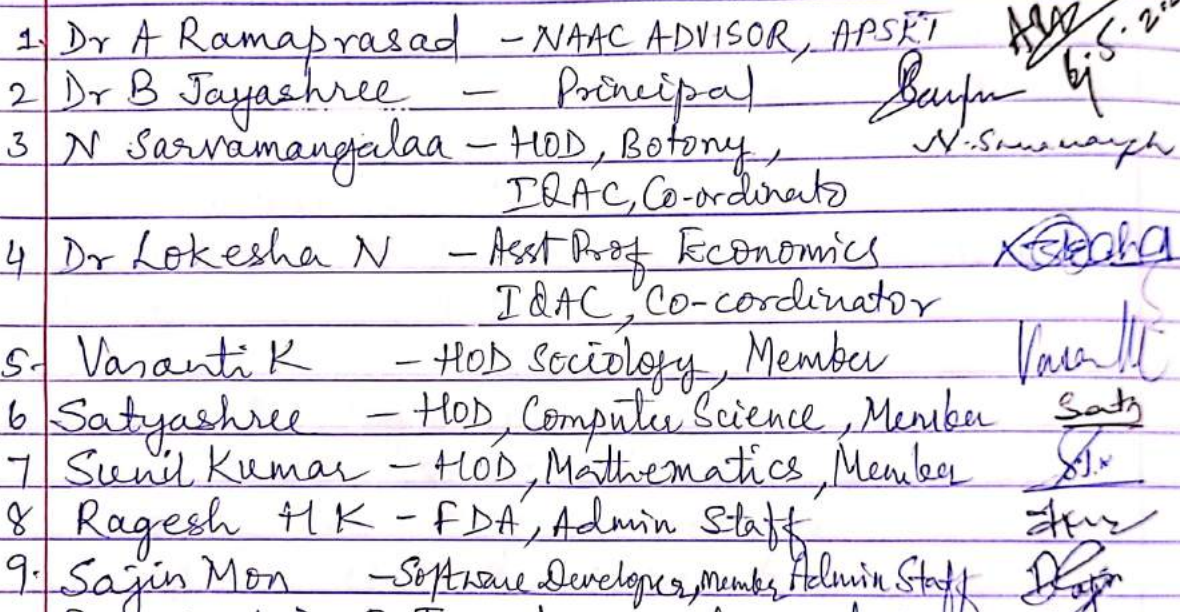 1. Dr A Ramaprasad - NAAC ADVISOR, APSET
2 Dr B Jayashree - Principal
3 N Sarvamangalaa - HOD, Botony,
IQAC, Co-ordinato
4 Dr Lokesha N - Asst Prof Economics
IQAC, Co-cordinator
5- Vasanti K - HOD Sociology, Member
6 Satyashree - HOD, Computer Science, Member Saty
7 Sunil Kumar - HOD, Matthematics, Member
8 Ragesh H K - FDA, Admin Staff
9. Sajin Mon - Software Developer, Member Admin Staff